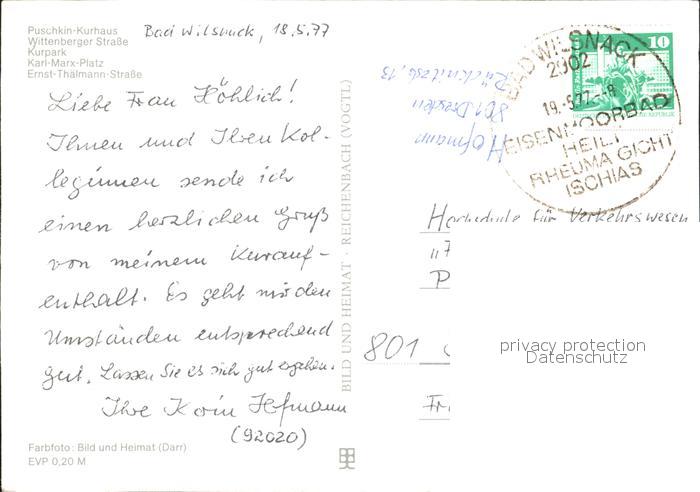 Puschkin-Kurhaus
Wittenberger Straße
Kurpark
Karl-Marx-Platz
Ernst-Thälmann-Straße
Bad Wilsnack, 18.5.77
Liebe Frau Höhlich!
Ihnen und Ihren Kol-
leginnen sende ich
einen herzlichen Gruß
von meinem Kurauf-
enthalt. Es geht mir den
Umständen entsprechend
gut. Lassen Sie es sich gut ergehen.
Ihre Karin Hofmann
(92020)
Farbfoto: Bild und Heimat (Darr)
EVP 0,20 M
BILD UND HEIMAT · REICHENBACH (VOGTL)
Hofmann
801 Dresden
13
10
BAD WILSNACK
2902
19.-5.77.-8
EISENMOORBAD
HEILT
RHEUMA GICHT
ISCHIAS
Hochschule für Verkehrswesen
801
privacy protection
Datenschutz